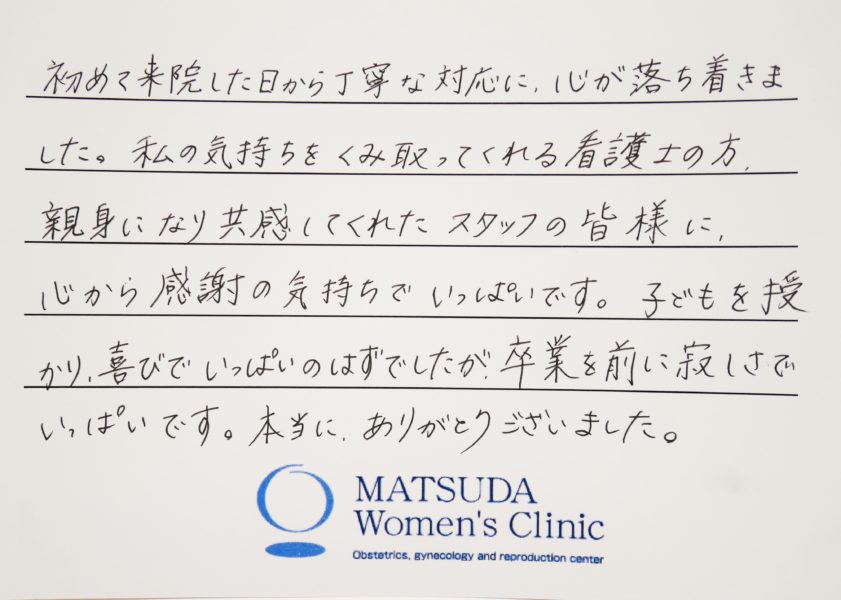 初めて来院した日から丁寧な対応に、心が落ち着きま
した。私の気持ちをくみ取ってくれる看護士の方、
親身になり共感してくれたスタッフの皆様に、
心から感謝の気持ちでいっぱいです。子どもを授
かり、喜びでいっぱいのはずでしたが、卒業を前に寂しさで
いっぱいです。本当に、ありがとうございました。
MATSUDA
Women's Clinic
Obstetrics, gynecology and reproduction center